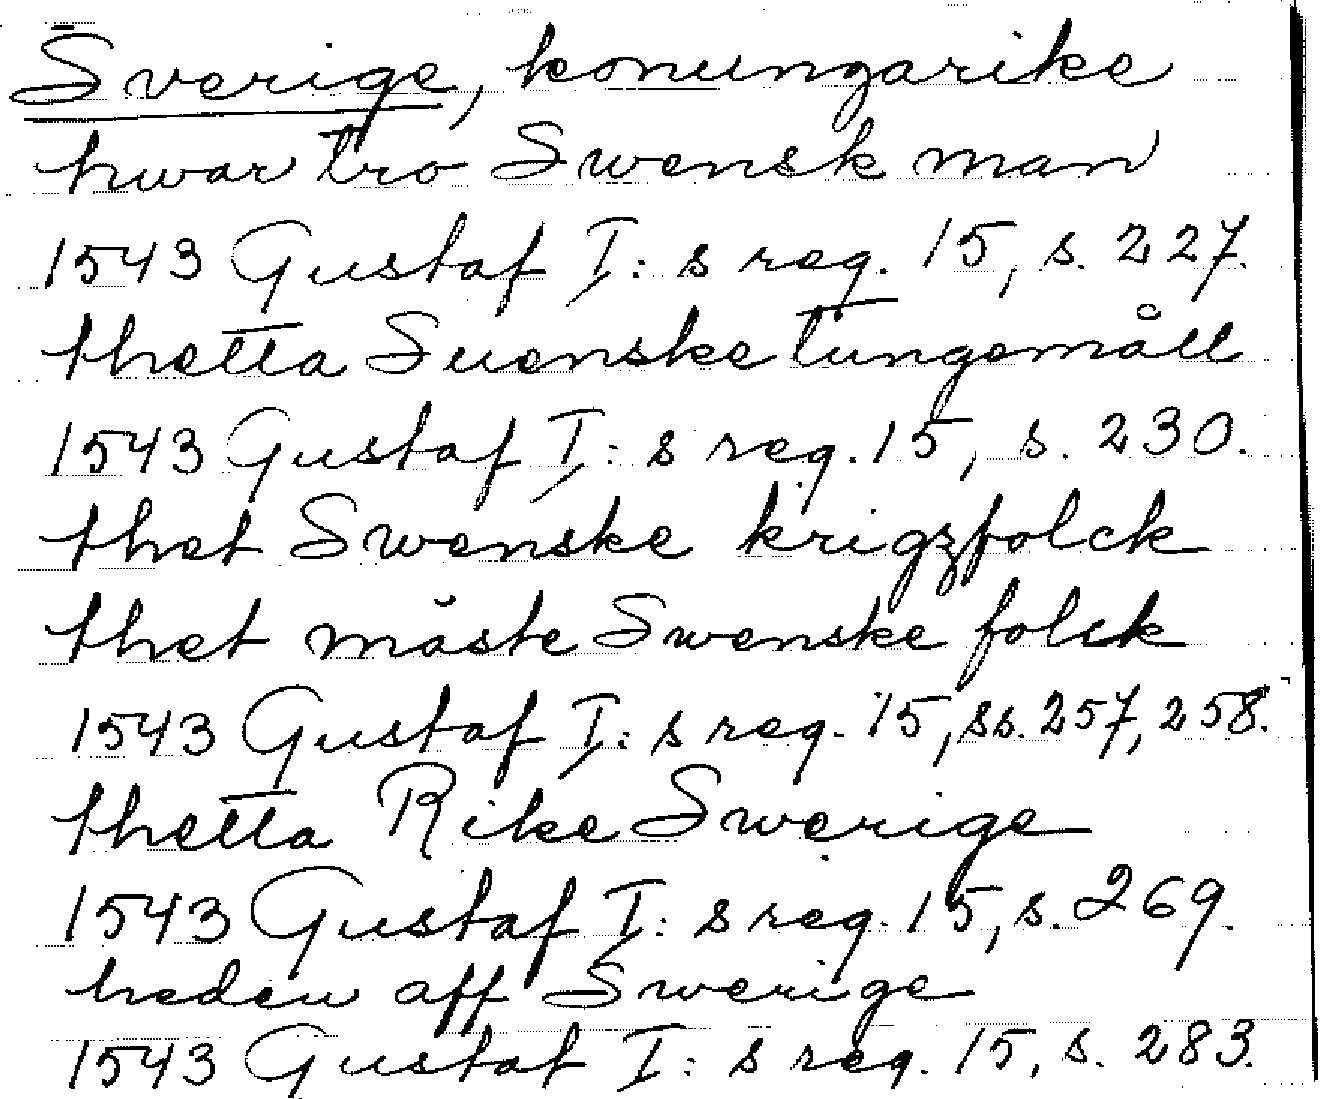 Sverige, konungarike
hwar tro Swensk man
1543 Gustaf I: s reg. 15, s. 227.
thetta Suenske tungemåll
1543 Gustaf I: s reg. 15, s. 230.
thet Swenske krigzfolck
thet måste Swenske folck
1543 Gustaf I: s reg. 15, ss. 257, 258.
thetta Rike Swerige
1543 Gustaf I: s reg. 15, s. 269.
heden aff Swerige
1543 Gustaf I: s reg. 15, s. 283.